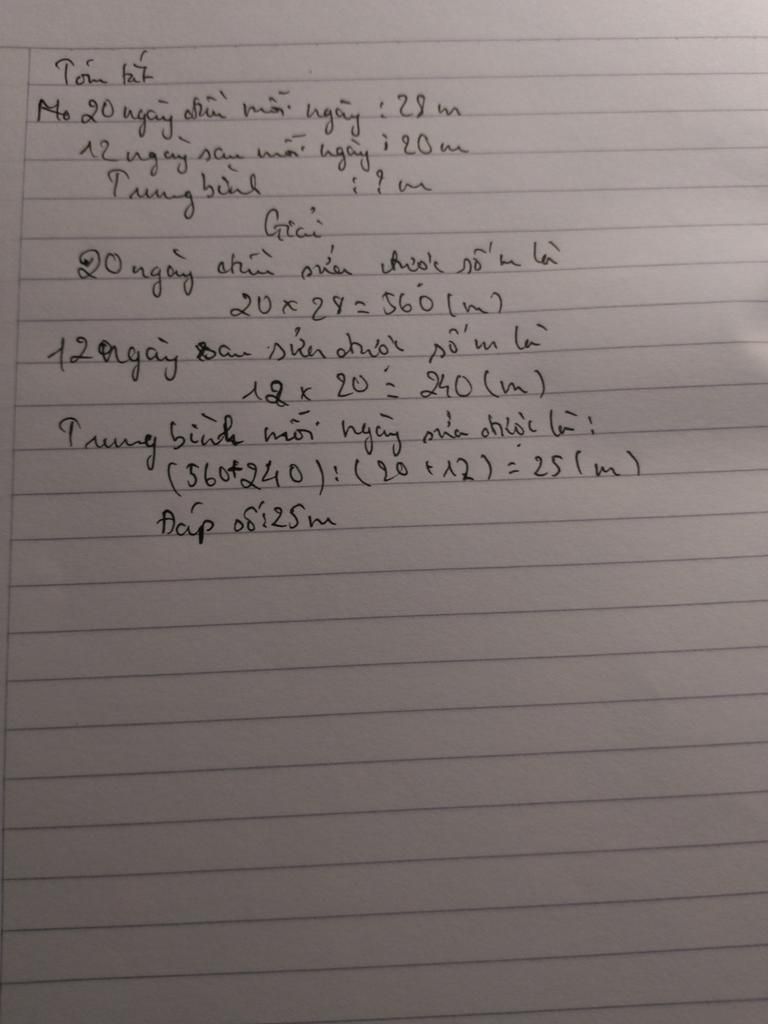 Tóm tắt
20 ngày đầu mỗi ngày : 28 m
12 ngày sau mỗi ngày : 20 m
Trung bình : ? m
Giải
20 ngày đầu sửa được số m là
20 x 28 = 560 (m)
12 ngày sau sửa được số m là
12 x 20 = 240 (m)
Trung bình mỗi ngày sửa được là :
(560+240) : (20 + 12) = 25 (m)
Đáp số : 25 m